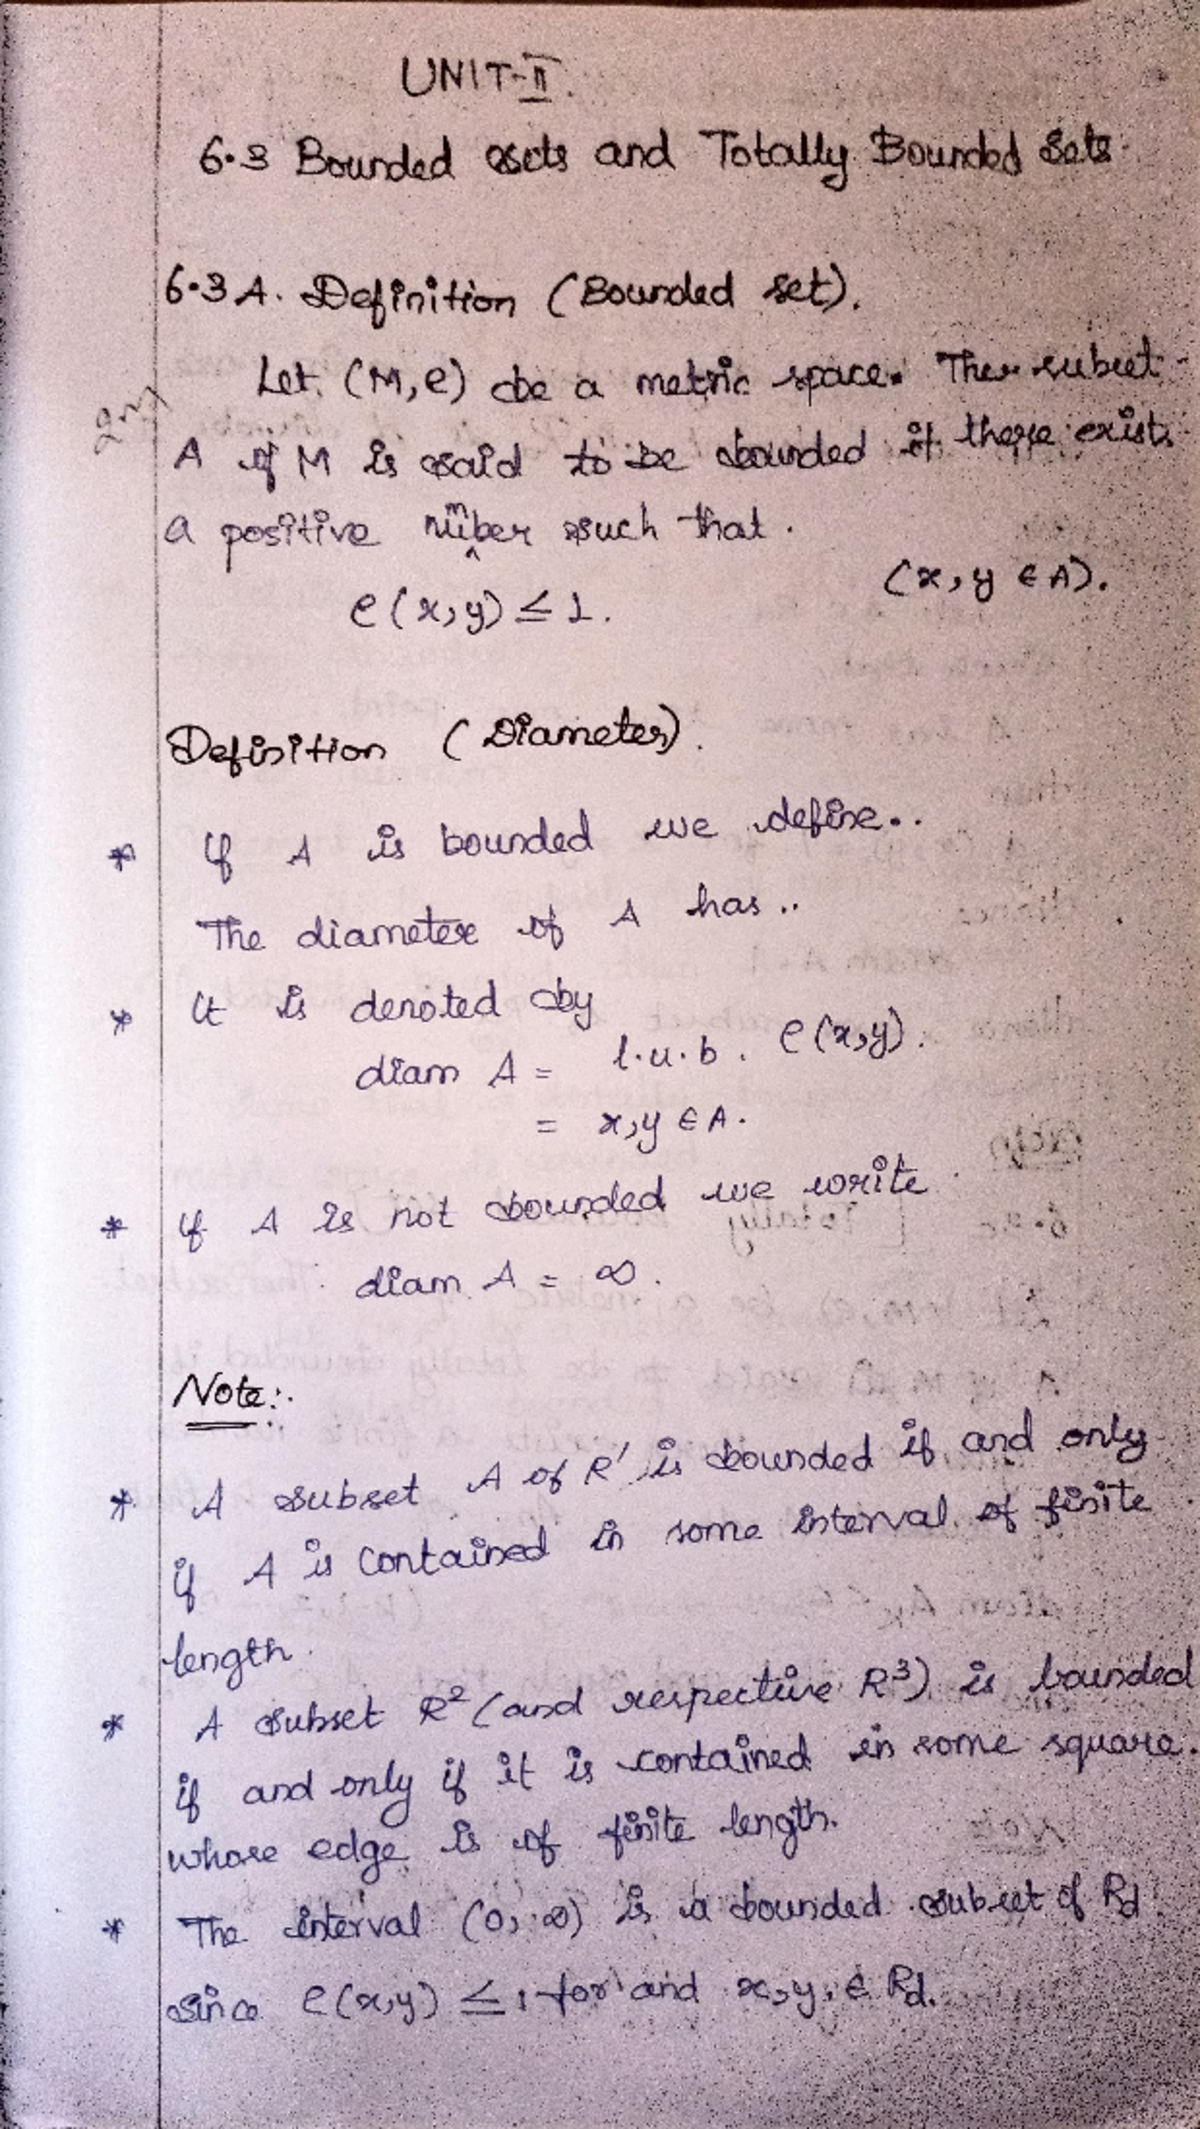 UNIT-II.
6.3 Bounded sets and Totally Bounded Sets.
6.3 A. Definition (Bounded set).
Let (M, ρ) be a metric space. The subset
2m
A of M is said to be bounded if there exist
a positive number such that.
(x, y ∈ A).
ρ(x, y) ≤ L.
Definition (Diameter).
* If A is bounded we define..
The diameter of A has ..
* It is denoted by
diam A = l.u.b. ρ(x,y).
= x,y ∈ A.
* if A is not bounded we write
diam A = ∞.
Note:.
* A subset A of R' is bounded if and only
if A is contained in some interval of finite
length.
* A subset R² (and respective R³) is bounded
if and only if it is contained in some square.
whose edge is of finite length.
* The interval (0, ∞) is a bounded subset of Rd.
since ρ(x,y) ≤ 1 for and x, y, ∈ Rd.